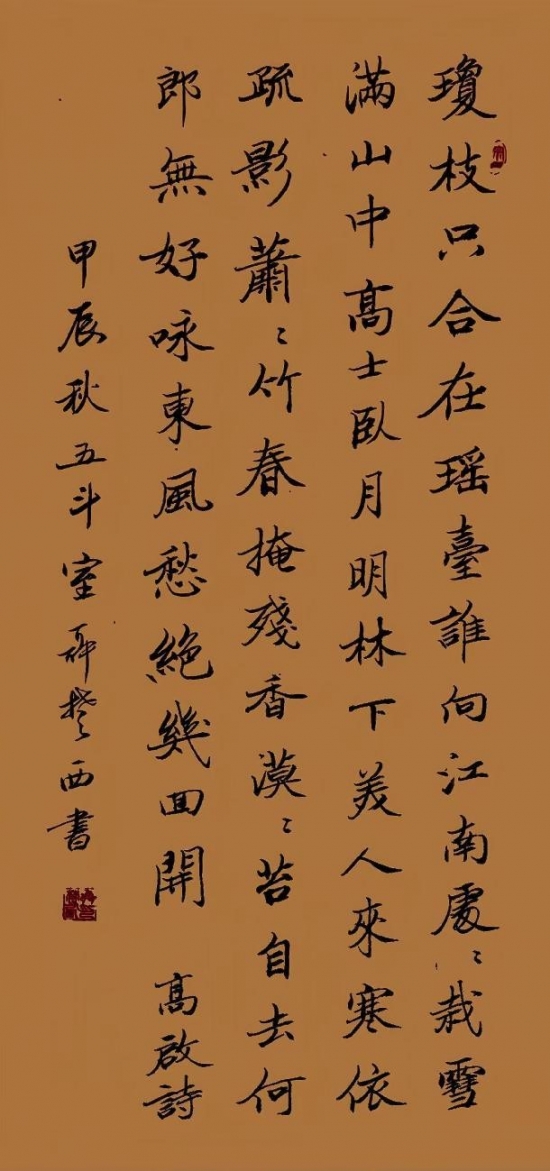 瓊枝只合在瑶臺誰向江南處〻栽雪
滿山中髙士臥月明林下美人來寒依
疏影蕭〻竹春掩殘香漠〻苔自去何
郎無好咏東風愁絶幾囬開 髙啟詩
甲辰秋五斗室西書